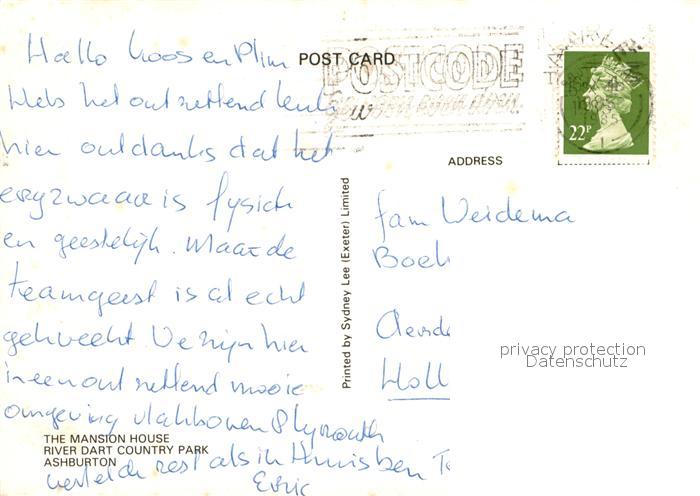 Hallo Koos en Plim
Heb het ontzettend leuk
hier ondanks dat het
erg zwaar is fysich
en geestelijk. Maar de
teamgeest is al echt
gekweekt We zijn hier
in een ontzettend mooie
omgeving vlakboven Plymouth
vertel de rest als ik thuis ben
Eric
POST CARD
POSTCODE
22P
ADDRESS
fam Weidema
Boek
Holl
Printed by Sydney Lee (Exeter) Limited
THE MANSION HOUSE
RIVER DART COUNTRY PARK
ASHBURTON
privacy protection
Datenschutz